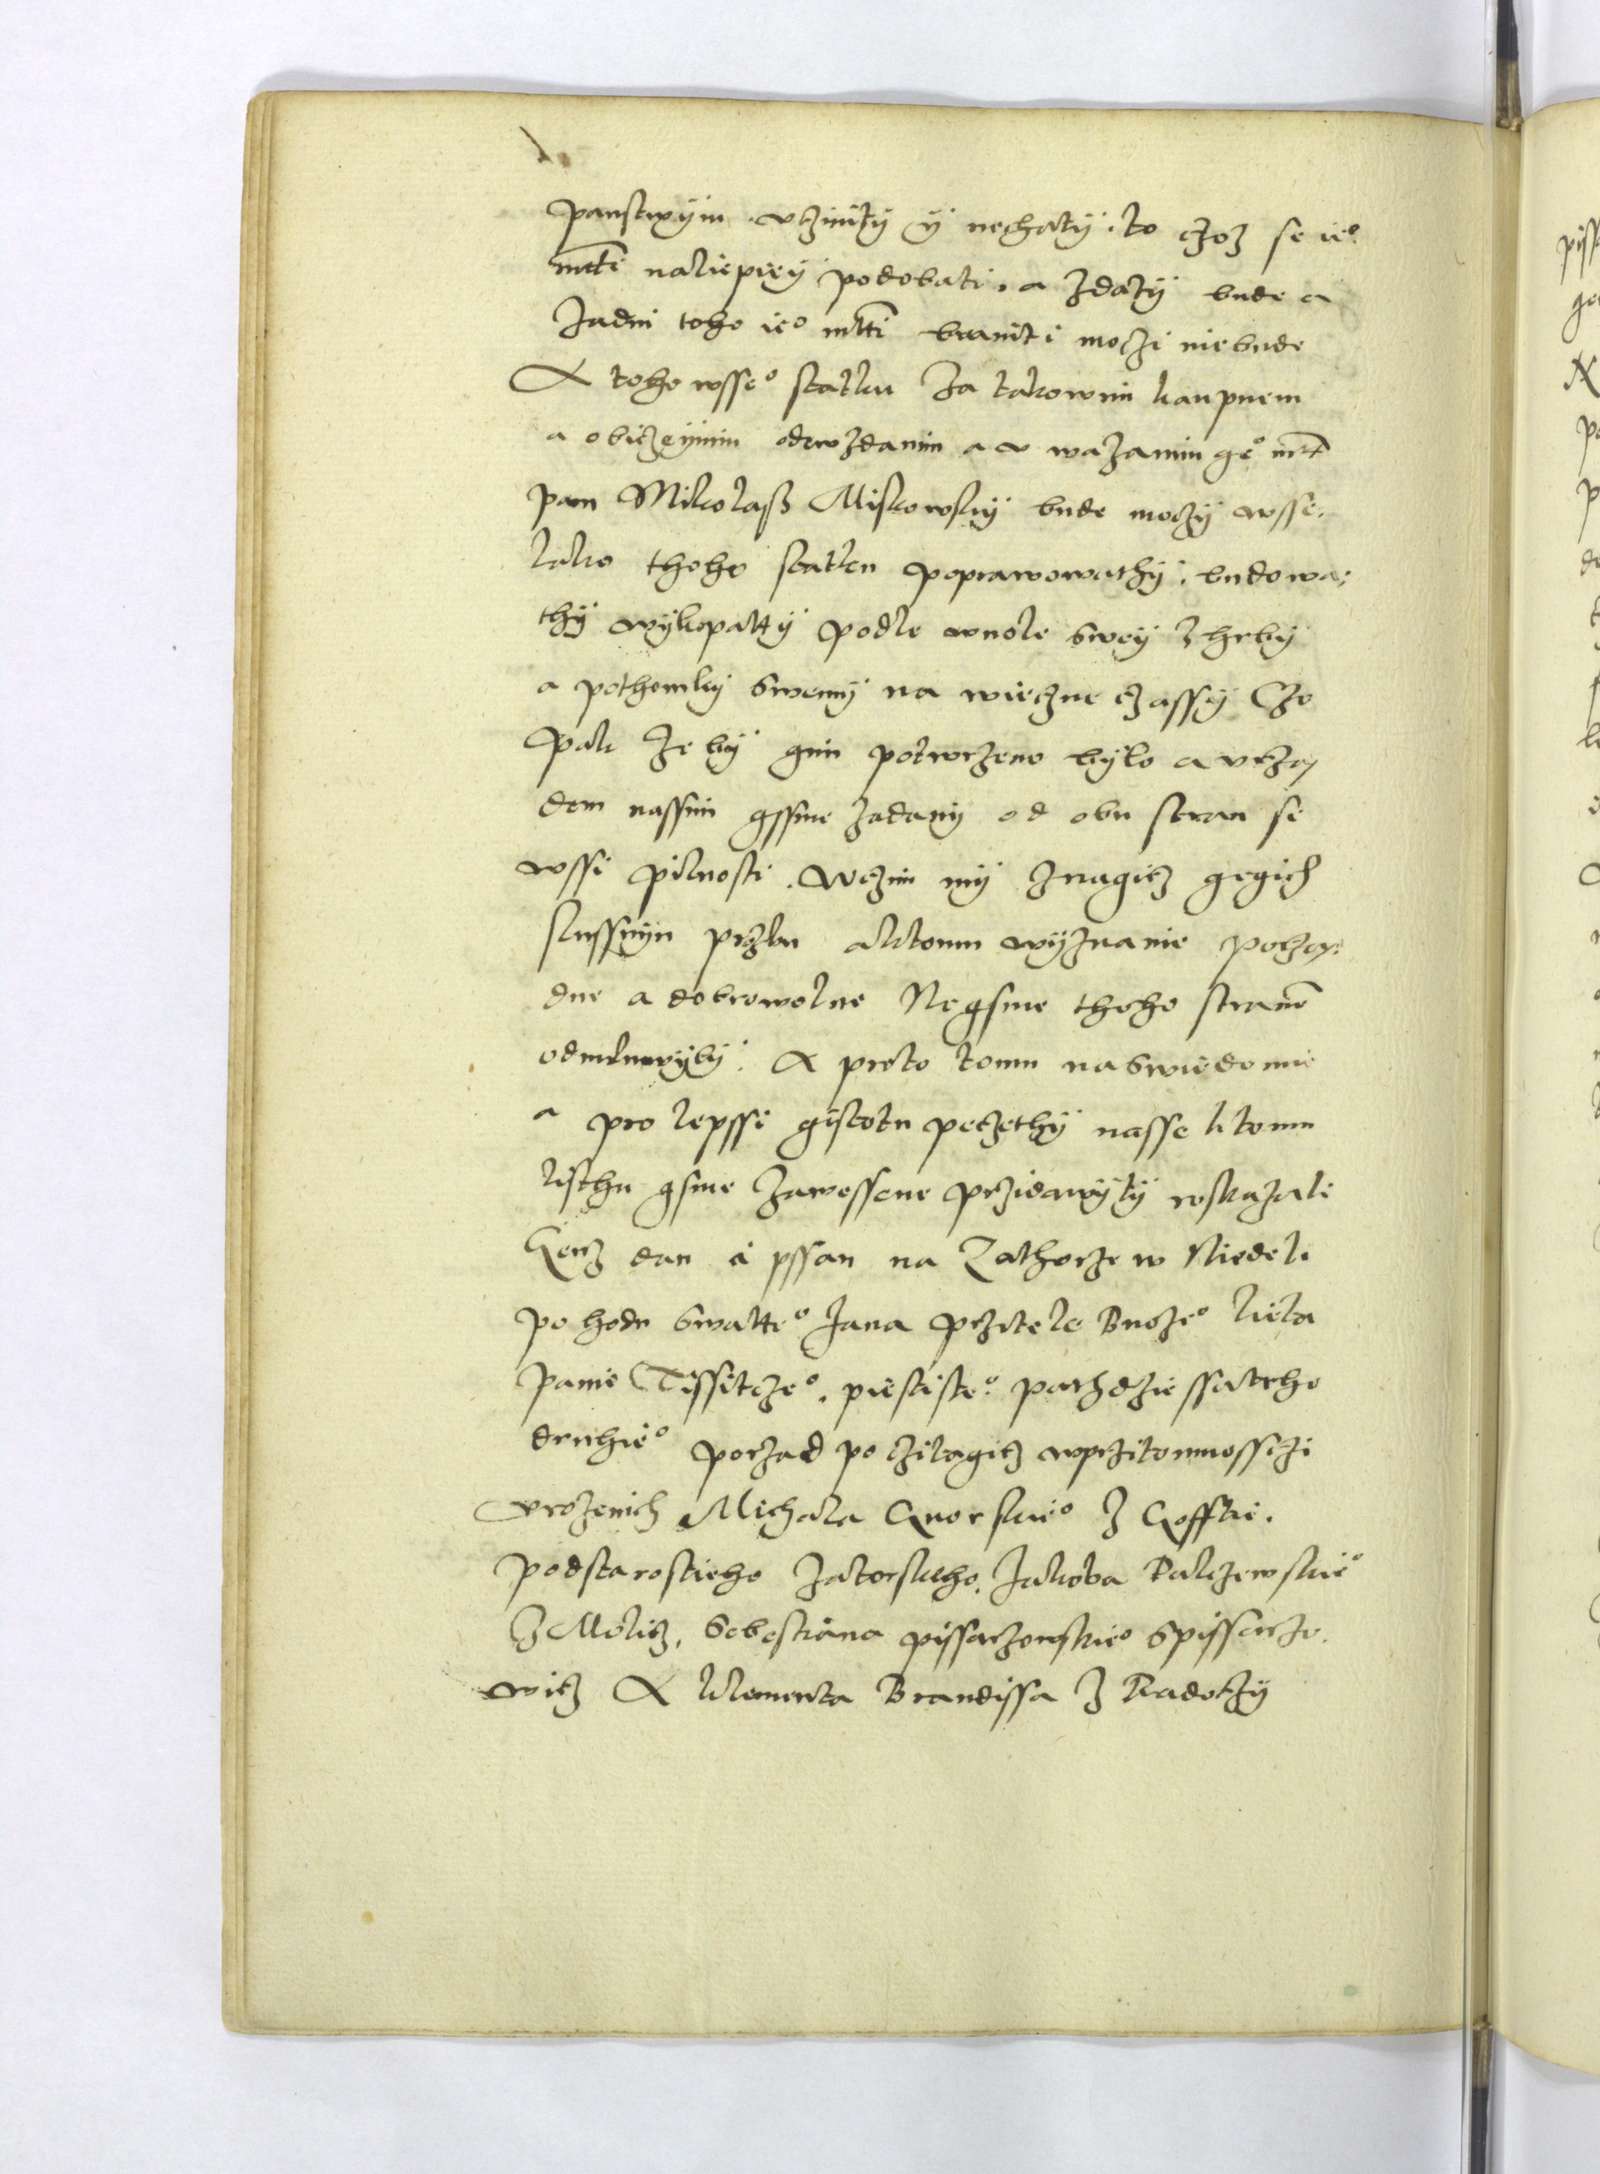 panstwym vczinity y nechaty. to czoz se ieo
mcti naliepiey podobati. a zdaty bude a
zadni toho ieo mcti braniti moczi niebude
A toho wsseo statku za takowim kaupnem
a obiczeynim odewzdanim a v wazanim geo mt
pan Mikolass Miskowsky bude moczy wsse,
lako thoho statku poprawowathy. budowa,
thy wykopatty podle wuole swey zhrby
a pothomky swemy na wieczne czassy Czo
pak ze by gim potwrzeno bylo a vrza,
dem nassim gssme zadany od obu stran se
wssi pilnosti. Wczim my znagicz gegich
slussnyu przbu aktomu wyznanie porza,
dne a dobrowolne Negsme thoho stranō
odmluwyly. A proto tomu naswiedomie
a pro lepssi gistotu peczethy nasse ktomu
listhu gsme zawessene prziwawyty roskazali
Genz dan a pssan na Zathorze w Niedeli
po hodu swatteo Jana Przitele Buozeo lieta
panie Tissiczeo. pietisteo. pathdziessateho
druhieo porzad po cztagicz wprzitomnossczi
vrozenich Michala Quorskieo Z Qosstie.
podstarostieho Zatorskeho, Jakoba Palczewskieo
Z Molicz, Sebestiana pissarzowskieo Spissarzo,
wicz A klementa Brandissa Z Radoczy